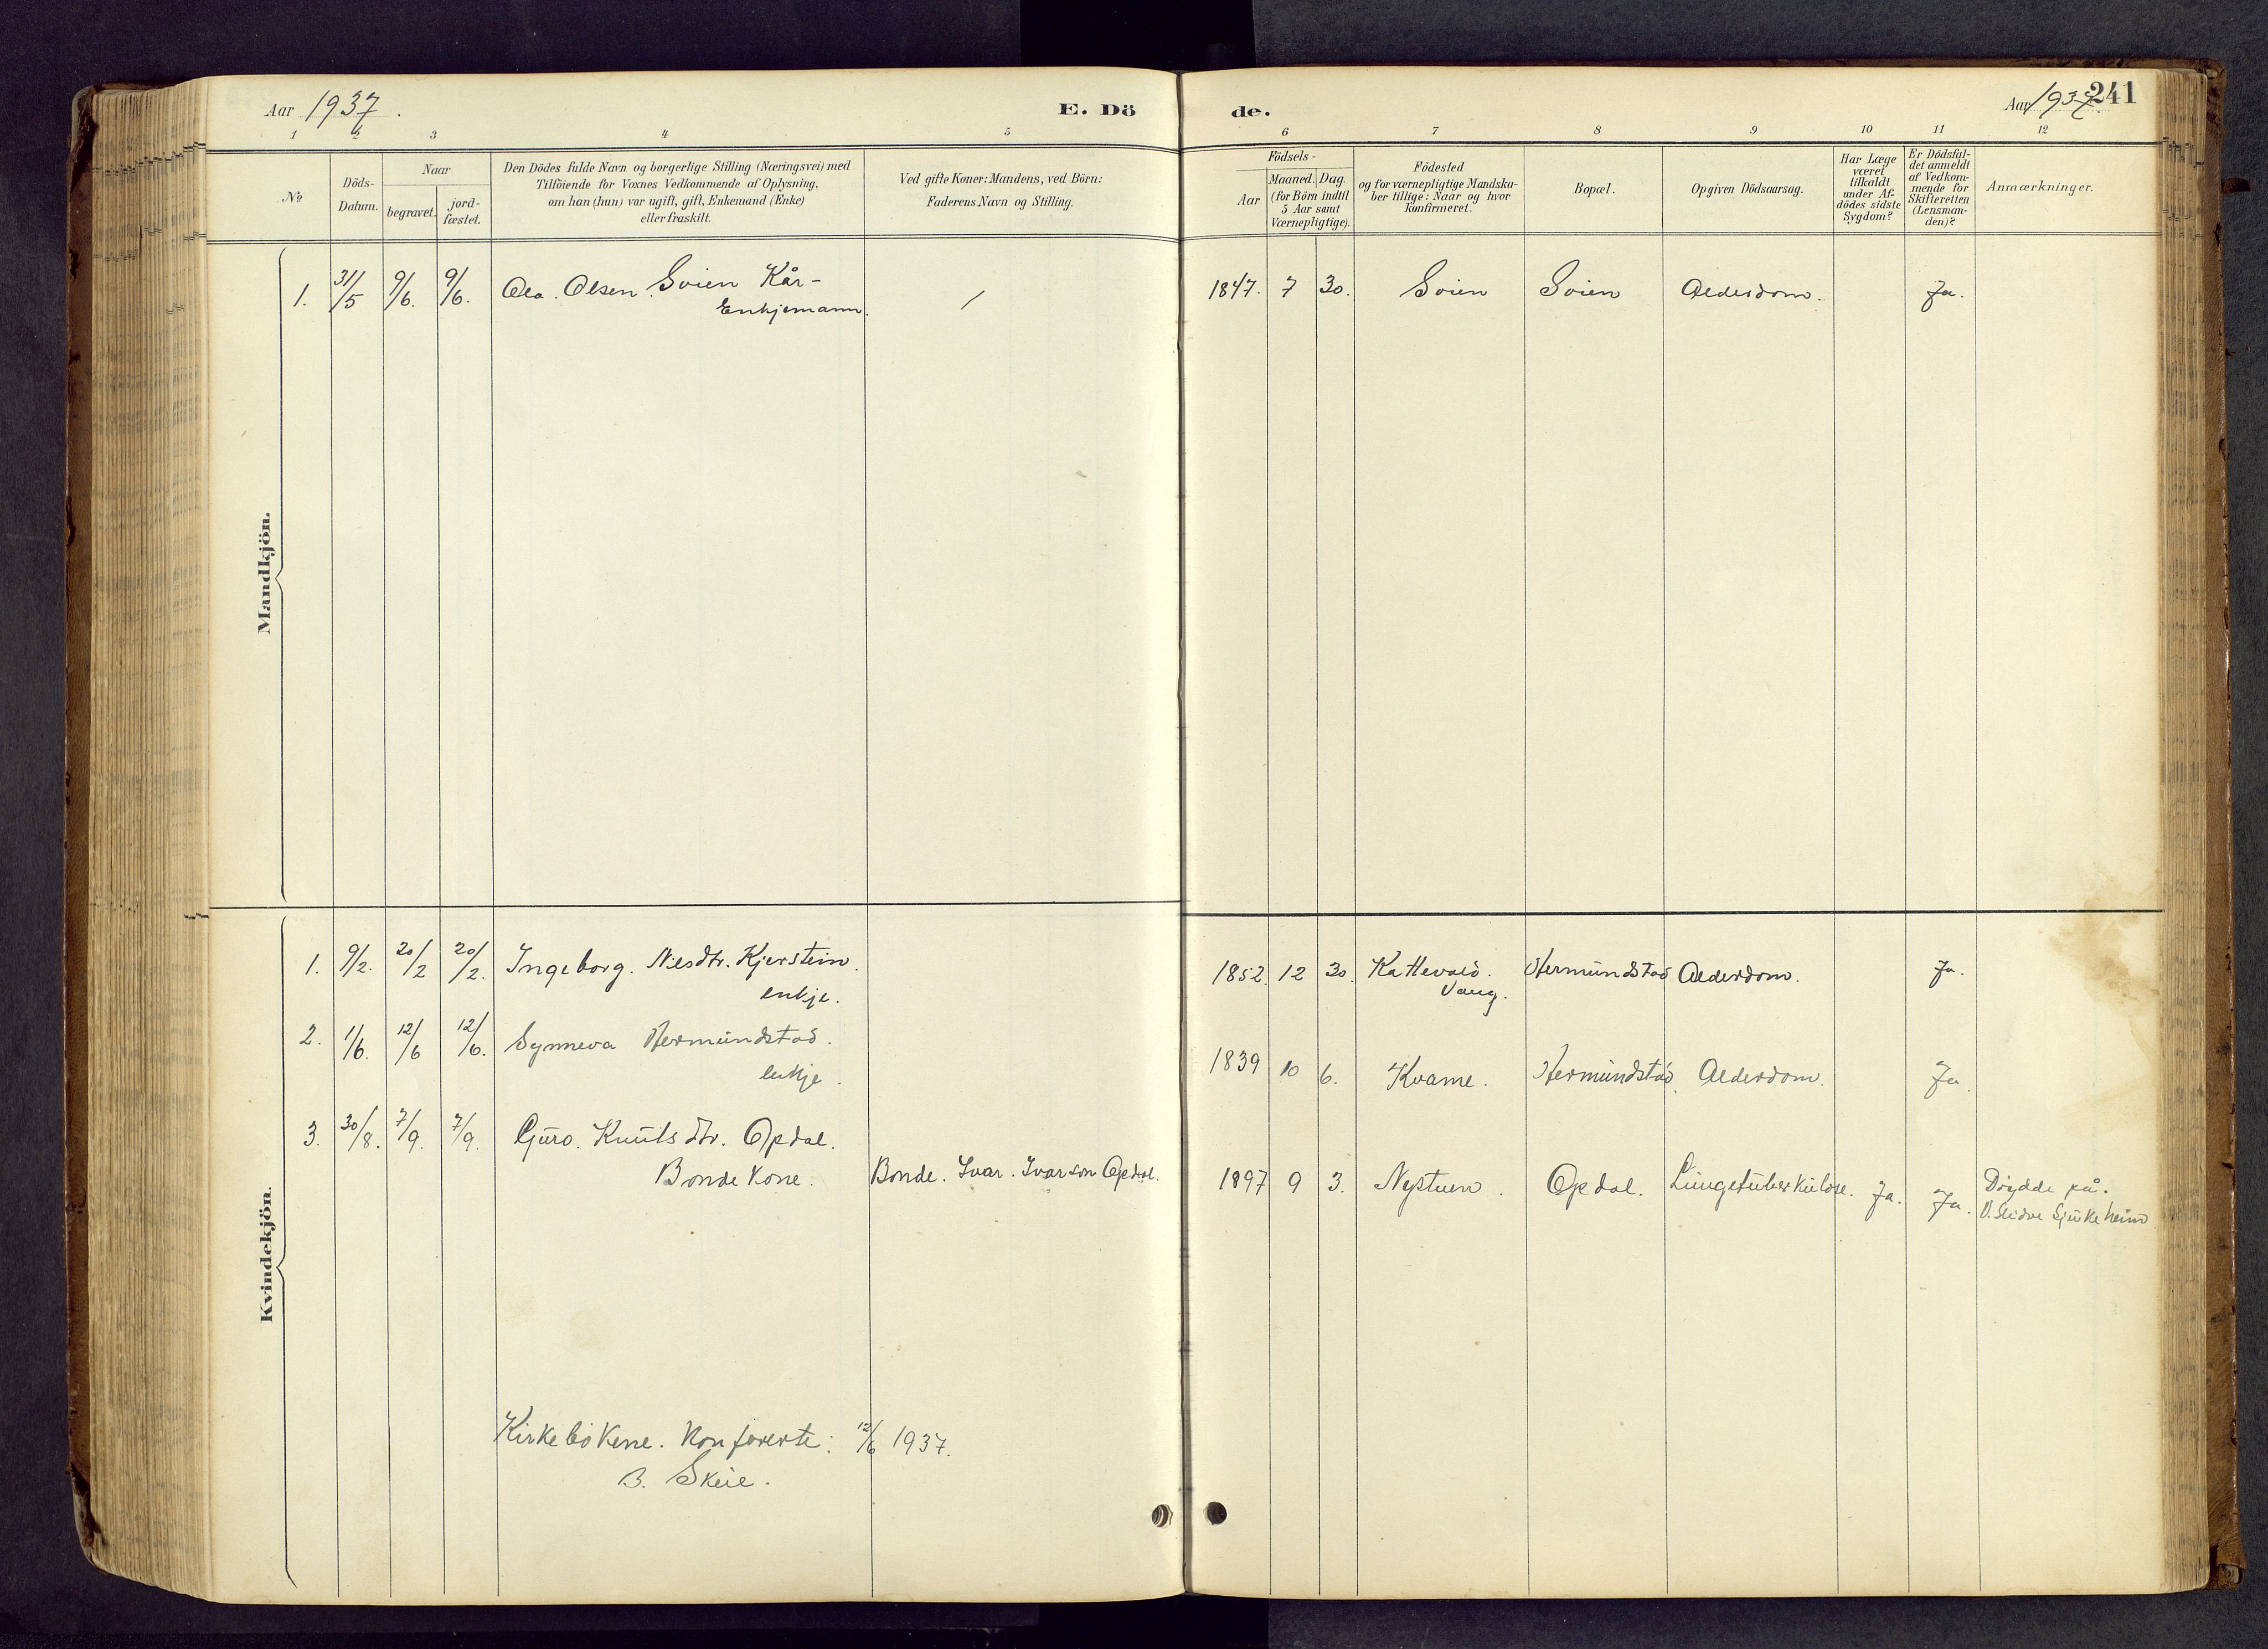 Aar 1937.
E. Dö
de.
Aar 1937.
241
1 2 3 4 5 6 7 8 9 10 11 12
No
Döds-
Datum.
Naar
begravet.
jord-
fæstet.
Den Dödes fulde Navn og borgerlige Stilling (Næringsvei) med
Tilföiende for Voxnes Vedkommende af Oplysning,
om han (hun) var ugift, gift, Enkemand (Enke)
eller fraskilt.
Ved gifte Koner: Mandens, ved Börn:
Faderens Navn og Stilling.
Födsels-
Aar
Maaned. Dag.
(for Börn indtil
5 Aar samt
Værnepligtige).
Födested
og for værnepligtige Mandska-
ber tillige: Naar og hvor
konfirmeret.
Bopæl.
Opgiven Dödsaarsag.
Har Læge
været
tilkaldt
under Af-
dödes sidste
Sygdom?
Er Dödsfal-
det anmeldt
af Vedkom-
mende for
Skifteretten
(Lensman-
den)?
Anmærkninger.
Mandkjön.
1. 31/5 9/6. 9/6. Ola. Olsen. Soien Kår-
Enkjemann. / 1847. 7 30. Soien Soien Alderdom. Ja.
Kvindekjön.
1. 9/2. 20/2 20/2. Ingeborg. Nilsdtr. Kjerstein.
enkje. 1852. 12 30. Kattevold.
Vang. Hermundstad Alderdom. Ja.
2. 1/6. 12/6 12/6. Synneva Hermundstad.
enkje. 1839 10 6. Kvame. Hermundstad. Alderdom. Ja.
3. 30/8. 7/9. 7/9. Guro. Knutsdtr. Opdal.
Bondekone. Bonde. Ivar. Ivarson Opdal. 1897 9 3. Nystuen. Opdal. Lungetuberkulose. Ja. Ja. Döydde på.
V. Slidre Sjukeheim
Kirkebökene. Konfererte: 12/6 1937.
B. Skeie.